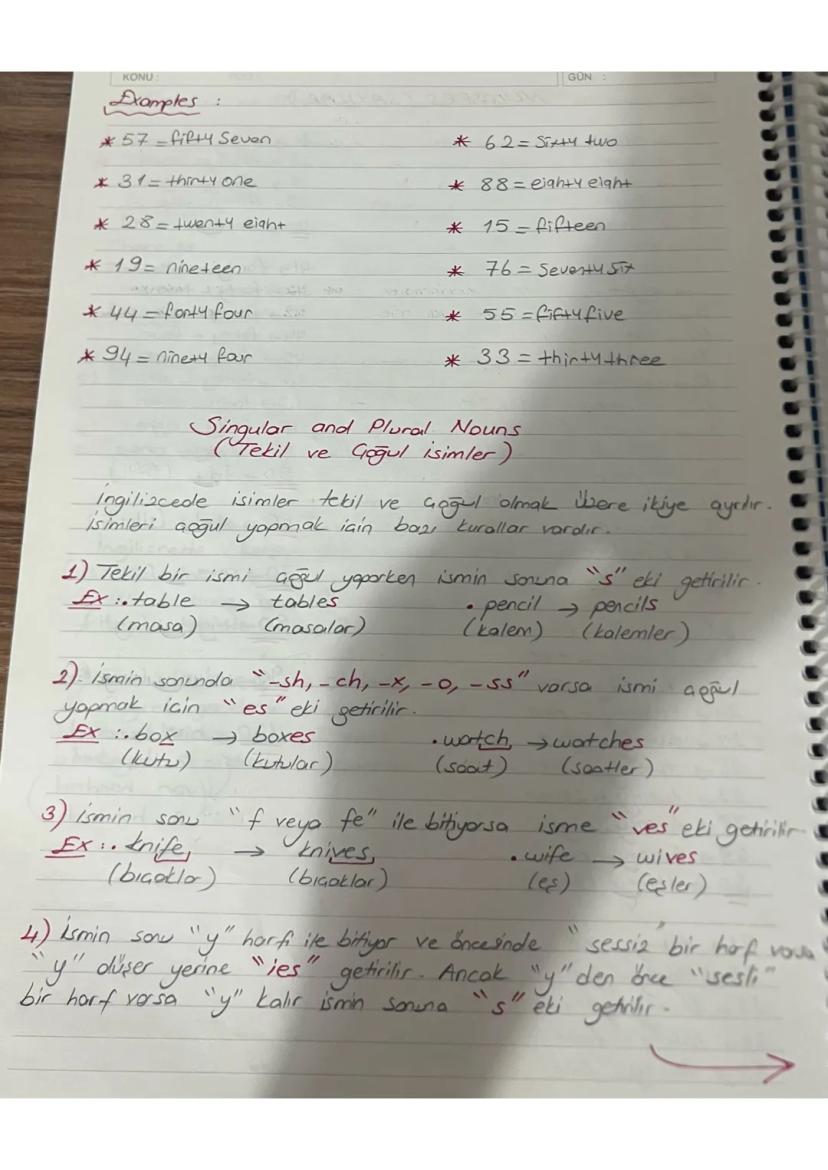 KONU :
GÜN :
Examples :
* 57 = fifty seven * 62 = sixty two
* 31 = thirty one * 88 = eighty eight
* 28 = twenty eight * 15 = fifteen
* 19 = nineteen * 76 = seventy six
* 44 = forty four * 55 = fifty five
* 94 = ninety four * 33 = thirty three
Singular and Plural Nouns
(Tekil ve Çoğul isimler)
İngilizcede isimler tekil ve çoğul olmak üzere ikiye ayrılır.
isimleri çoğul yapmak için bazı kurallar vardır.
1) Tekil bir ismi çoğul yaparken ismin sonuna "s" eki getirilir.
Ex :. table → tables • pencil → pencils
(masa) (masalar) (kalem) (kalemler)
2) İsmin sonunda "-sh, -ch, -x, -o, -ss" varsa ismi çoğul
yapmak icin "es" eki getirilir.
Ex :. box → boxes • watch → watches
(kutu) (kutular) (saat) (saatler)
3) İsmin sonu "f veya fe" ile bitiyorsa isme "ves" eki getirilir
Ex :. knife → knives • wife → wives
(bıçaklar) (bıçaklar) (eş) (eşler)
4) İsmin sonu "y" harfi ile bitiyor ve öncesinde "sessiz" bir harf varsa
"y" düşer yerine "ies" getirilir. Ancak "y" den önce "sesli"
bir harf varsa "y" kalır ismin sonuna "s" eki getirilir.